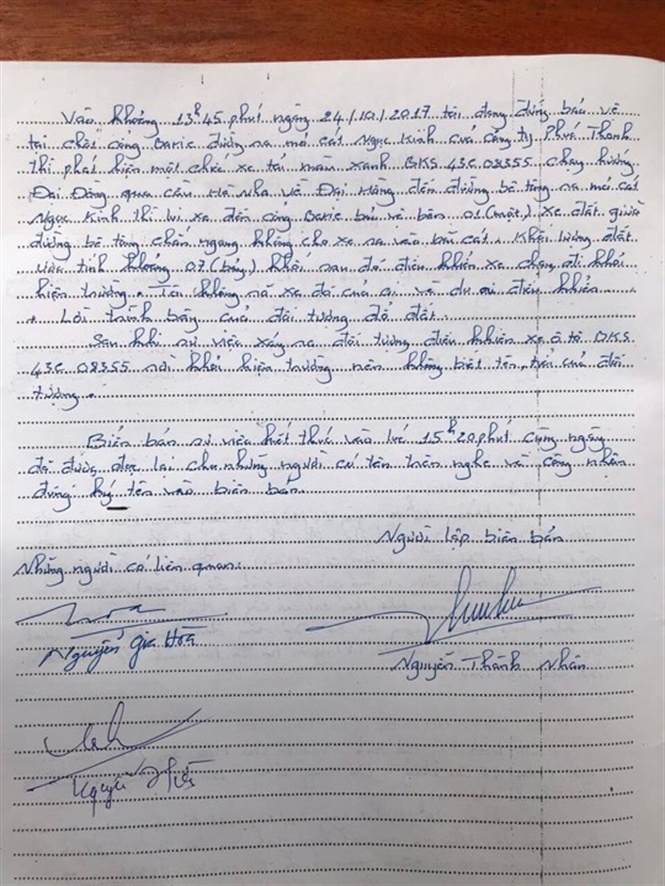 Vào khoảng 13h45 phút ngày 24/10/2017 tôi đang đứng bảo vệ
tại chốt cổng Barie đường ra mỏ cát Ngọc Kinh của công ty Phú Thành
thì phát hiện một chiếc xe tải màu xanh BKS 43C 08355 chạy hướng
Đại Đồng qua cầu Hà Nha về Đại Hồng đến đường bê tông ra mỏ cát
Ngọc Kinh thì lùi xe đến cổng Barie bảo vệ bên 01 (một) xe đất giữa
đường bê tông chắn ngang không cho xe ra vào bãi cát. Khối lượng đất
ước tính khoảng 07 (bảy) khối sau đó điều khiển xe chạy đi khỏi
hiện trường. Tôi không rõ xe đó của ai và do ai điều khiển.
+ Lời trình bày của đối tượng đổ đất.
Sau khi sự việc xảy ra đối tượng điều khiển xe ô tô BKS
43C 08355 rời khỏi hiện trường nên không biết tên, tuổi của đối
tượng.
Biên bản sự việc kết thúc vào lúc 15h20 phút cùng ngày
đã được đọc lại cho những người có tên trên nghe và công nhận
đúng ký tên vào biên bản
Người lập biên bản
Những người có liên quan:
Nguyễn Gia Hòa
Nguyễn Thành Nhân
Nguyễn